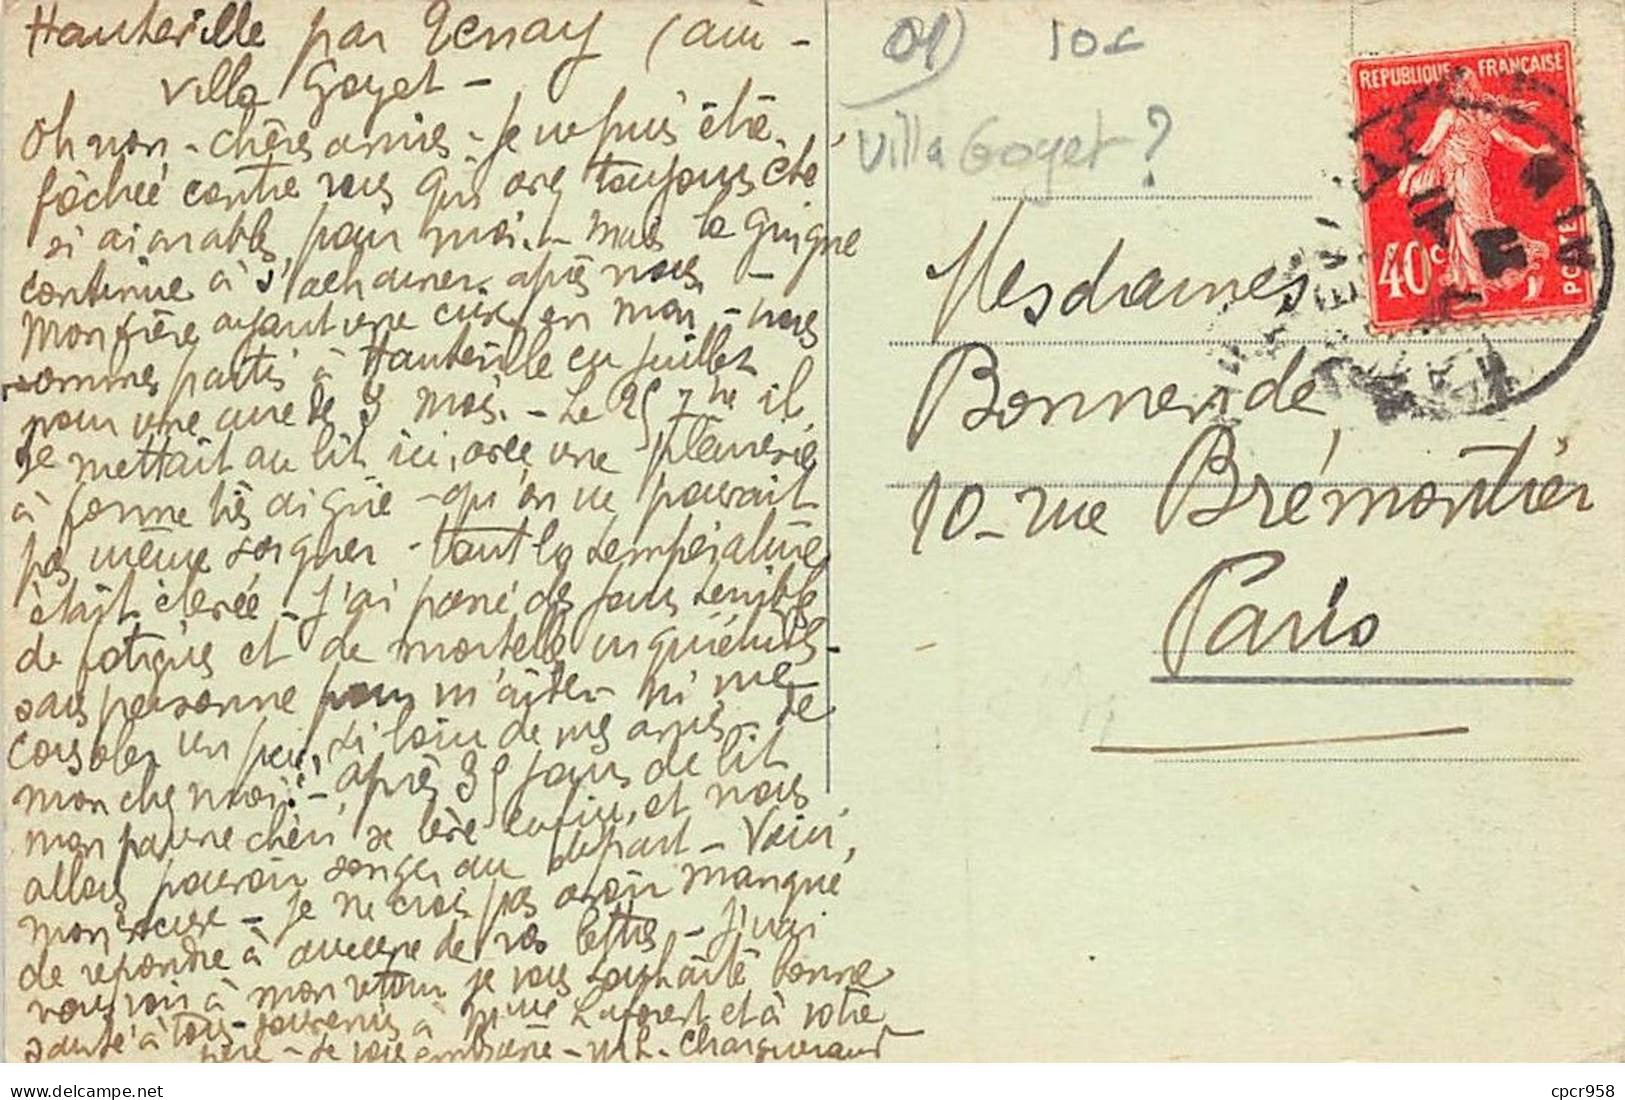 Hauteville par Tenay (ain -
villa Goyet -
Oh non - chères amies - je ne puis être
fâchée contre vous qui avez toujours été
si aimables pour moi. - mais la guigne
continue à s'acharner après nous -
Mon frère ayant une crise en mai - nous
sommes partis à Hauteville en juillet
pour une cure de 3 mois. - Le 25 7bre il
se mettait au lit ici, avec une pleurésie
à forme très aigüe - qu'on ne pouvait
pas même soigner - tant la température
était élevée - J'ai passé des jours terribles
de fatigues et de mortelle inquiétudes -
sans personne pour m'aider ni me
consoler un peu, si loin de mes amis - de
mon chez moi! - après 35 jours de lit
mon pauvre chéri se lève enfin, et nous
allons pouvoir songer au départ - Voici,
mon excuse - Je ne crois pas avoir manqué
de répondre à aucune de vos lettres - J'irai
vous voir à mon retour je vous souhaite bonne
santé à tous - souvenirs à Mme Laforest et à votre
père - Je vous embrasse - M.L. Chargueraud
01) 10c
Villa Goyet?
REPUBLIQUE FRANÇAISE
40c
POSTES
Mesdames
Bonnerde
10 - rue Brémontier
Paris
delcampe.net
cpcr958